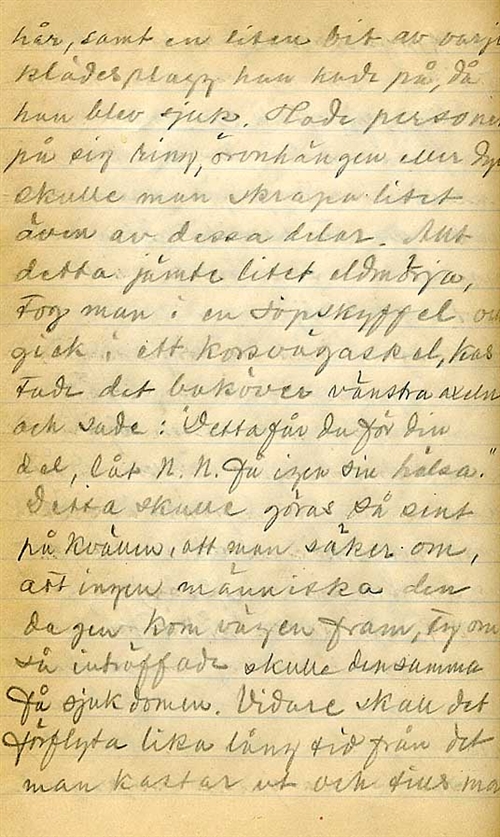 hår, samt en liten bit av varje
klädesplagg han hade på, då
han blev sjuk. Hade persone
på sig ring, öronhängen eller dy
skulle man skrapa litet
även av dessa delar. Allt
detta jämte litet eldmörja,
tog man i en sopskyffel oc
gick i ett korsvägaskel, kas
tade det baköver vänstra axeln
och sade: "Detta får du för din
del, låt N. N. få igen sin hälsa."
Detta skulle göras så sent
på kvällen, att man säker om,
att ingen människa den
dagen kom vägen fram, ty om
så inträffade skulle densamma
få sjukdomen. Vidare skall det
förflyta lika lång tid från det
man kastar ut och tills ma